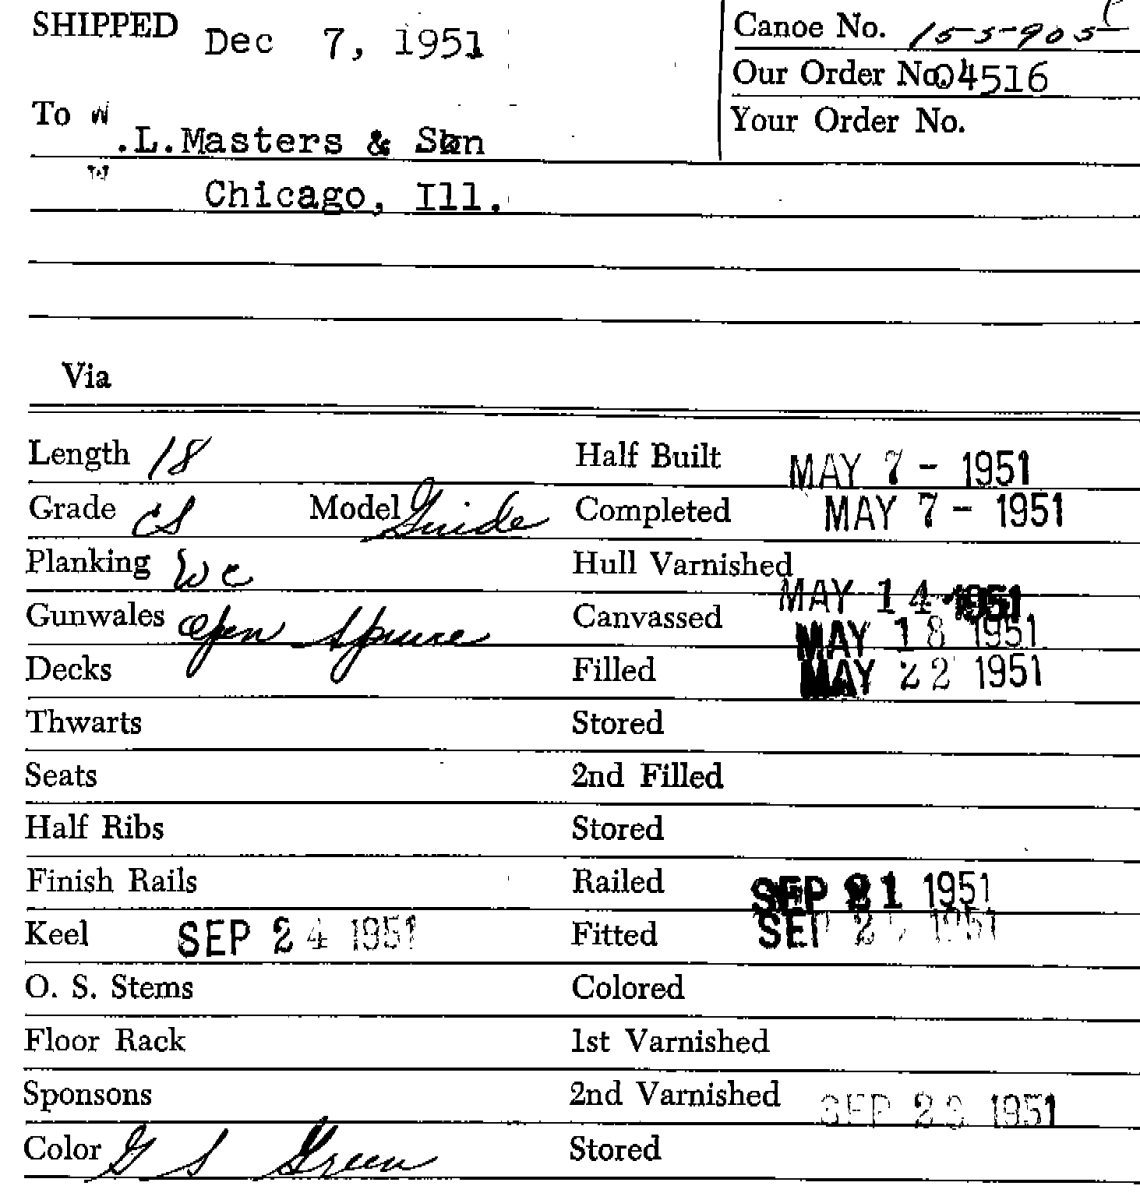 SHIPPED Dec 7, 1951
Canoe No.
Our Order No. 04516
To W.L.Masters & Son
Your Order No.
Chicago, Ill.
Via
Length 18 Half Built MAY 7 - 1951
Grade CS Model Guide Completed MAY 7 - 1951
Planking WC Hull Varnished MAY 14 1951
Gunwales Open Spruce Canvassed MAY 18 1951
Decks Filled MAY 22 1951
Thwarts Stored
Seats 2nd Filled
Half Ribs Stored
Finish Rails Railed SEP 21 1951
Keel SEP 24 1951 Fitted SEP 1951
O. S. Stems Colored
Floor Rack 1st Varnished
Sponsons 2nd Varnished SEP 1951
Color G S Green Stored